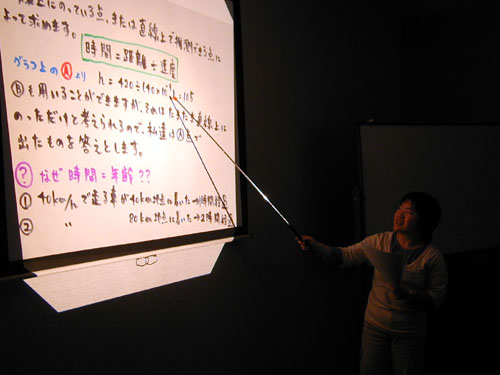 線上にのっている点、または直線上で推測できる点に
よって求めます。
時間=距離÷速度
グラフ上の Ⓐ より h = 420÷(40×10)=105
Ⓑ も用いることができますが、それはたまたま直線上に
のっただけと考えられるので、私達は Ⓐ 点で
出たものを答えとします。
? なぜ 時間=年齢??
① 40km/hで走る車が40kmの地点に着いた→1時間
② 〃 80kmの地点に着いた→2時間